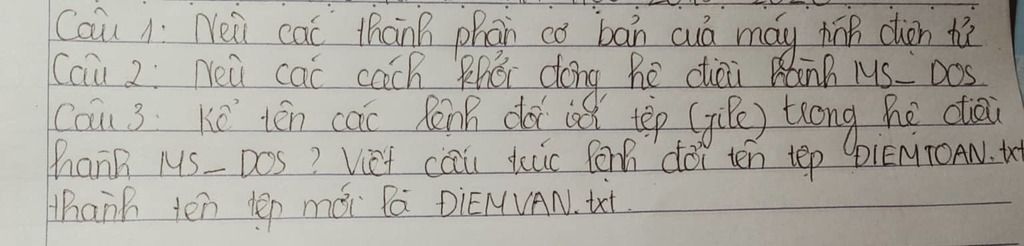 Câu 1: Nêu các thành phần cơ bản của máy tính điện tử
Câu 2: Nêu các cách khởi động hệ điều hành MS_DOS
Câu 3: Kể tên các lệnh đối với tệp (file) trong hệ điều
hành MS_DOS? Viết cấu trúc lệnh đổi tên tệp DIEMTOAN.txt
thành tên tệp mới là DIEMVAN.txt.